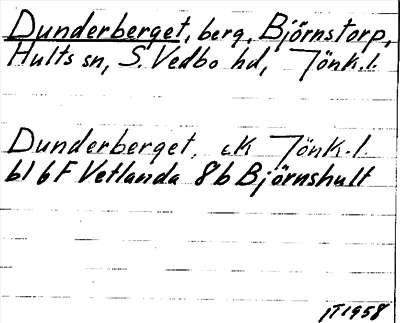 Dunderberget, berg, Björnstorp,
Hults sn, S. Vedbo hd, Jönk.l.
Dunderberget, eK Jönk.l.
bl 6F Vetlanda 8b Björnshult
IT1958